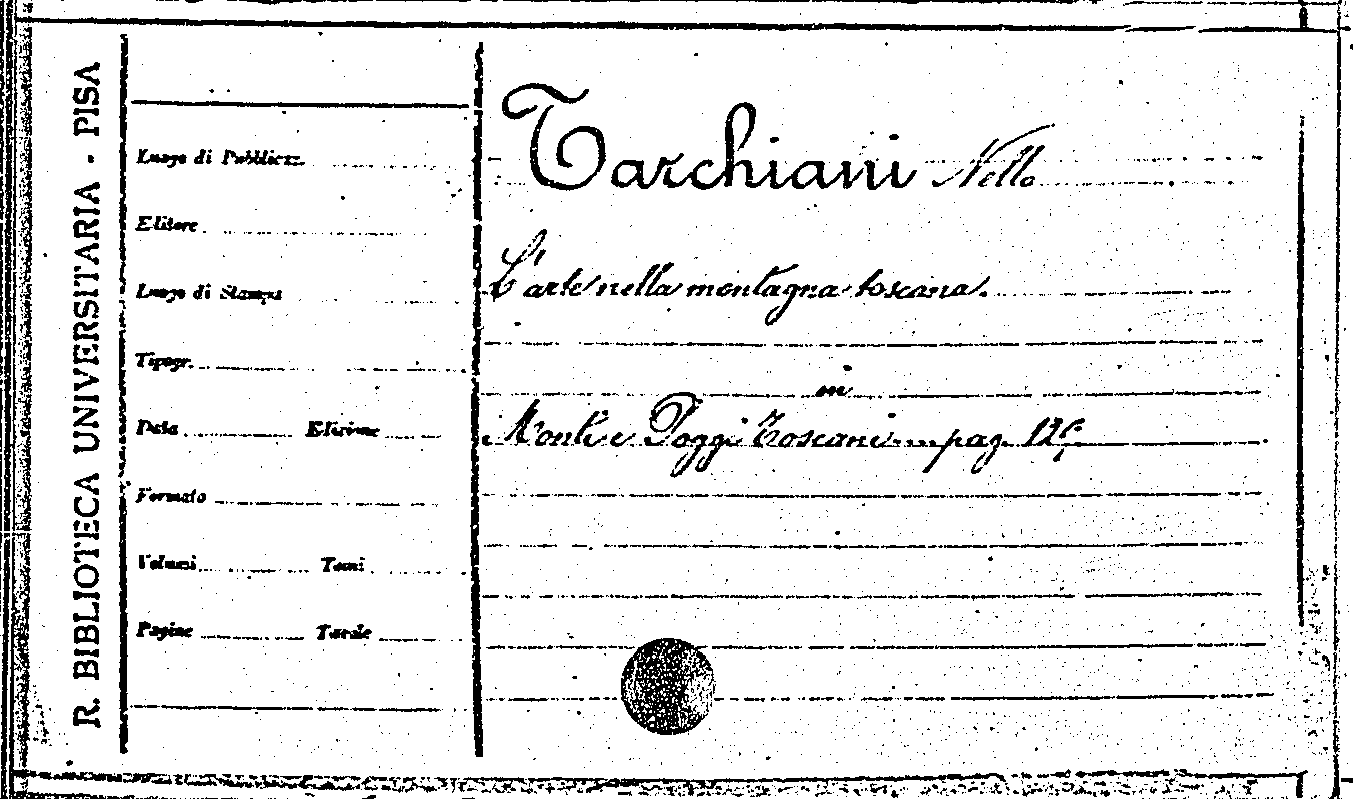 R. BIBLIOTECA UNIVERSITARIA - PISA
Luogo di Pubblicaz.
Editore
Luogo di Stampa
Tipogr.
Data Edizione
Formato
Volumi Tomi
Pagine Tavole
Tarchiani Nello
L'arte nella montagna toscana.
in
Monti e Poggi Toscani pag.